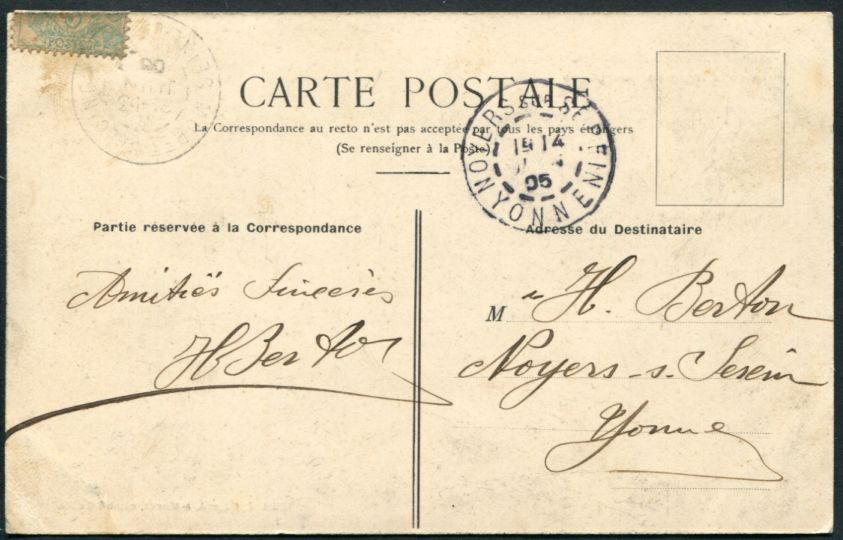 CARTE POSTALE
La Correspondance au recto n'est pas acceptée par tous les pays étrangers
(Se renseigner à la Poste)
NOYERS SUR SEREIN
14
05
YONNE
Partie réservée à la Correspondance
Adresse du Destinataire
Amitiés Sincères
HBerton
M e H. Berton
Noyers-s-Serein
Yonne
POSTES